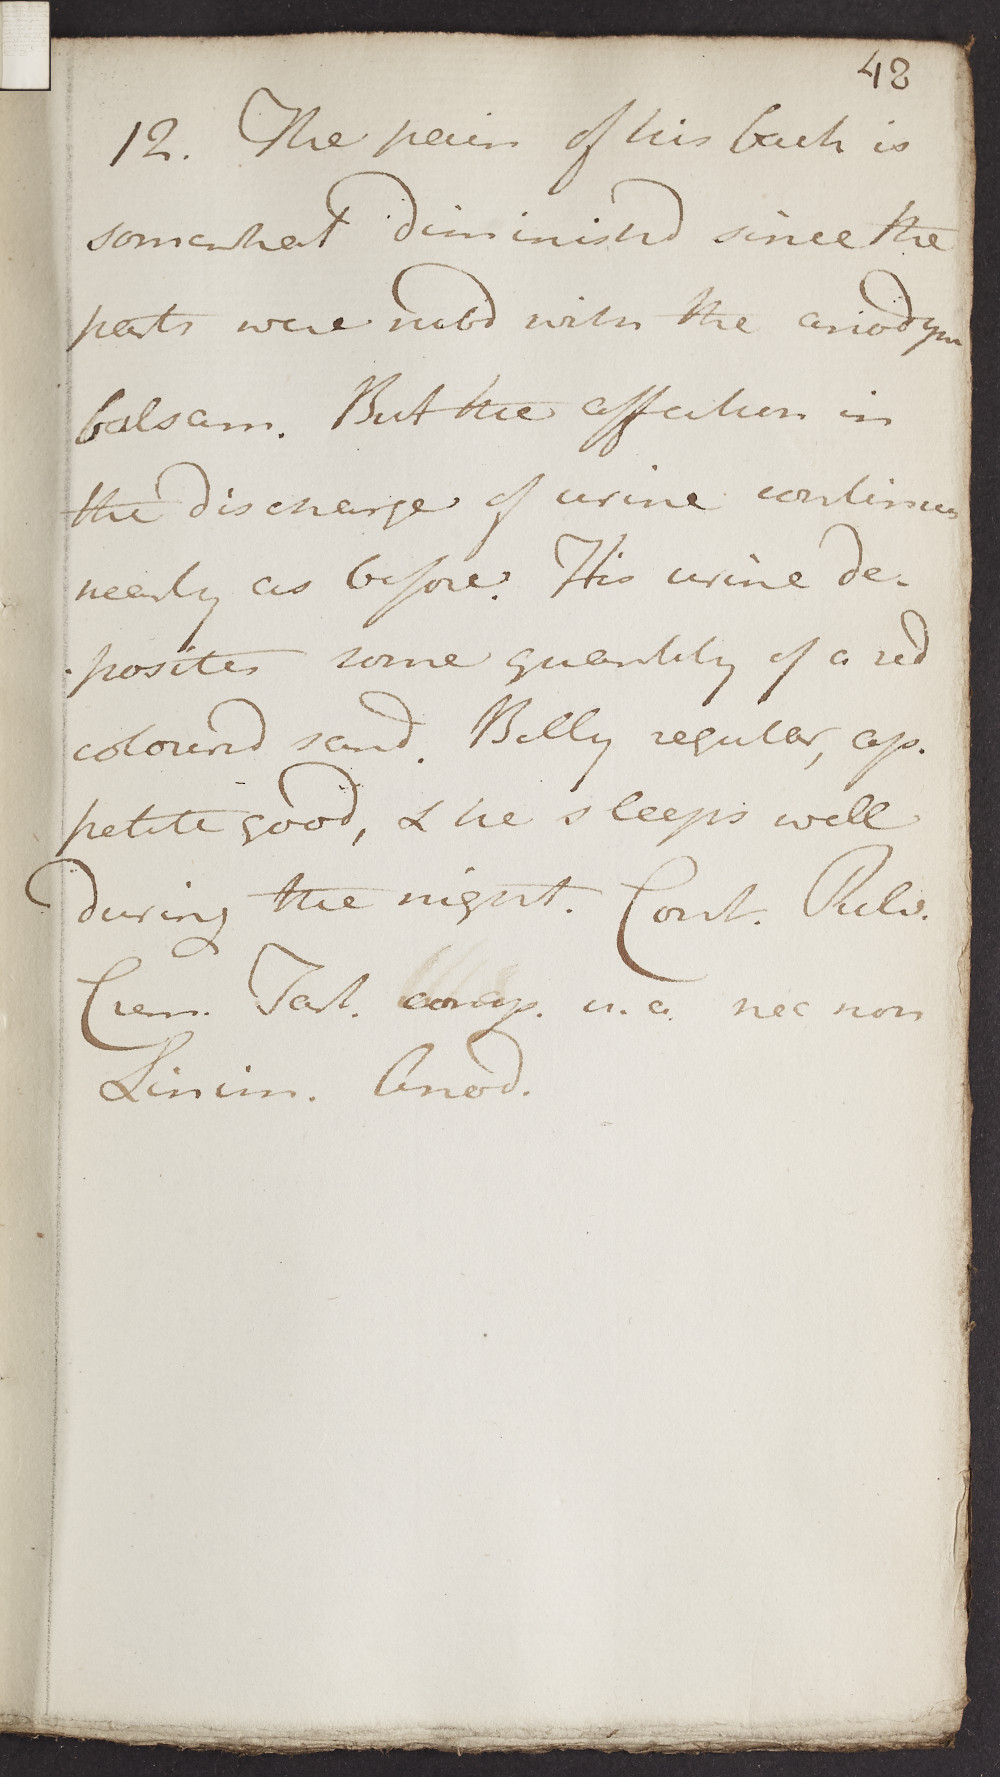 48
12. The pain of his back is
somewhat diminishd since the
parts were rubd with the anodyn
balsam. But the affection in
the discharge of urine continues
nearly as before. His urine de-
-posites some quantity of a red
colourd sand. Belly regular, ap-
petite good, & he sleeps well
during the night. Cont. Pulv.
Crem. Tart. comp. u.a. nec non
Linim. Anod.